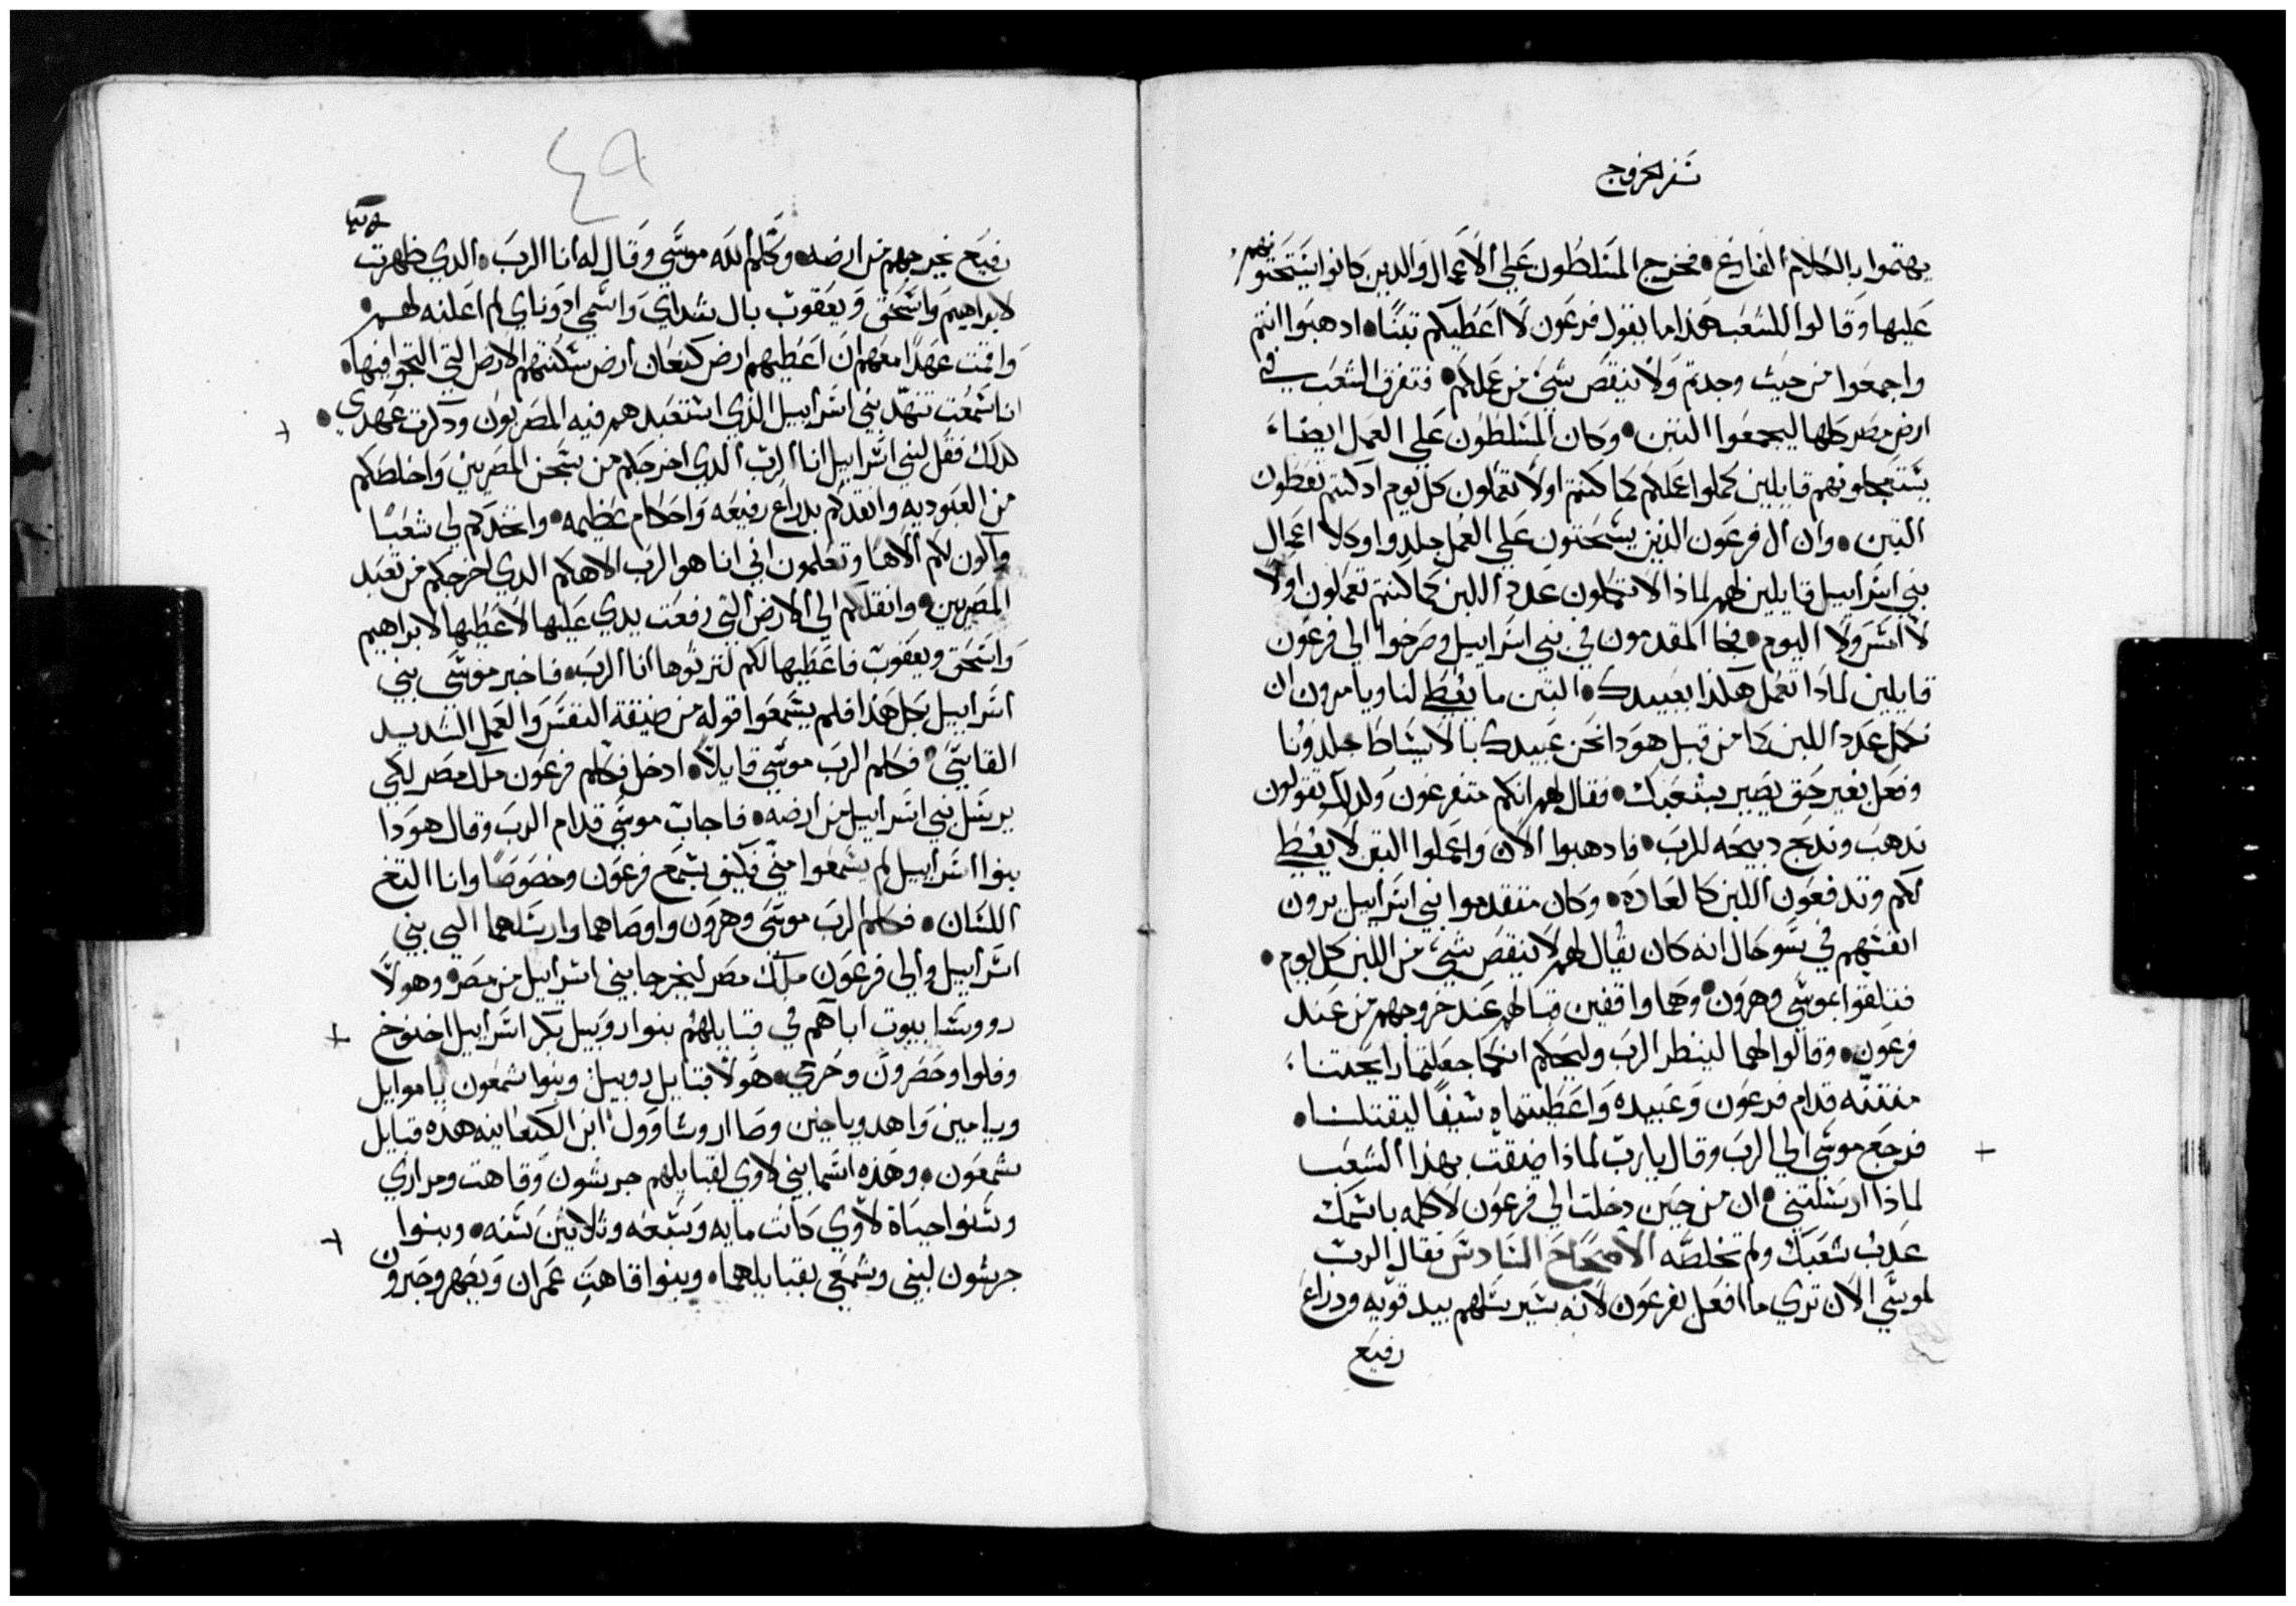 سفر الخروج
يهتموا بالكلام الفارغ • فخرج المسلطون علي الاعمال والدين كانوا يستحتونهم
عليها وقالوا للشعب هذا ما يقول فرعون لا اعطيكم تبنًا • ادهبوا انتم
واجمعوا من حيث وجدتم ولا ينقص شي من عملكم • فتفرق الشعب في
ارض مصر كلها ليجمعوا التبن • وكان المسلطون علي العمل ايضاً
يستعجلونهم قايلين كملوا عملكم كما كنتم اولا تعملون كل يوم اد كنتم تعطون
التبن • وان ال فرعون الذين يستحتون علي العمل جلدوا وكلا اعمال
بني اسراييل قايلين لهم لماذا لا تكملون عدد اللبن كما كنتم تعملون اولا
لا امس ولا اليوم • فجا المقدمون في بني اسراييل وصرخوا الي فرعون
قايلين لماذا تعمل هكذا بعبيدك • التبن ما يعطي لنا ويامرون ان
نكمل عدد اللبن كما من قبل هودا نحن عبيدك بالاسياط جلدونا
وفعل بغير حق يصير بشعبك • فقال لهم انكم متفرغون ولدلك تقولون
ندهب وندبح دبيحه للرب • فادهبوا الان واعملوا التبن لا يعطي
لكم وتدفعون اللبن كالعاده • وكان متقدموا بني اسراييل يرون
انفسهم في سو حال انه كان يقال لهم لا ينقص شي من اللبن كل يوم •
فتلقوا بموسي وهرون • وهما واقفين قبالهم عند خروجهم من عند
فرعون • وقالوا لهما لينظر الرب وليحكم انكما جعلتما رايحتنا
منتنه قدام فرعون وعبيده واعطيتماه سيفًا ليقتلنا •
فرجع موسي الي الرب وقال يارب لماذا ضيقت بهذا الشعب
لماذا ارسلتني • ان من حين دخلت الي فرعون لاكلمه باسمك
عدب شعبك ولم تخلصه الاصحاح السادس فقال الرب
لموسي الان تري ما افعل بفرعون لانه سيرسلهم بيد قويه ودراع
رفيع
٤٩
رفيع يخرجهم من ارضه • وكلم الله موسي وقال له انا الرب • الدي ظهرت
لابراهيم واسحق ويعقوب بال شداي واسمي ادوناي لم اعلنه لهم •
واقمت عهدًا معهم ان اعطيهم ارض كنعان ارض سكنتهم الارض التي التجوا فيها •
انا سمعت تنهد بني اسراييل الذي استعبدهم فيه المصريون ودكرت عهدي •
كدلك فقل لبني اسراييل انا الرب الدي اخرجكم من سجن المصريين واخلصكم
من العبوديه وانقدكم بدراع رفيعه واحكام عظيمه • واتخدكم لي شعبًا
واكون لكم الاهًا وتعلمون اني انا هو الرب الاهكم الدي اخرجكم من تعبد
المصريين • وانقلكم الي الارض التي رفعت يدي عليها لاعطيها لابراهيم
واسحق ويعقوب فاعطيها لكم لترتوها انا الرب • فاخبر موسي بني
اسراييل بكل هذا فلم يسمعوا قوله من ضيقة النفس والعمل الشديد
القاسي • فكلم الرب موسي قايلاً • ادخل فكلم فرعون ملك مصر لكي
يرسل بني اسراييل من ارضه • فاجاب موسي قدام الرب وقال هودا
بنوا اسراييل لم يسمعوا مني فكيف يسمع فرعون وخصوصًا وانا التغ
اللسان • فكلم الرب موسي وهرون واوصاهما وارسلهما الي بني
اسراييل والي فرعون ملك مصر ليخرجا بني اسراييل من مصر • وهولا
روساء بيوت اباهم في قبايلهم بنوا روبيل بكر اسراييل اخنوخ
وفلوا وحصرون وخرمي • هولا قبايل روبيل وبنوا شمعون ياموايل
ويامين واهد وياخين وصاار وشاوول ابن الكنعانيه هذه قبايل
شمعون • وهذه اسما بني لاوي لقبايلهم جرشون وقاهت ومراري
وسنوا حياة لاوي كانت مايه وسبعه وتلاتين سنه • وبنوا
جرشون لبني وشمعي بقبايلهما • وبنوا قاهت عمران ويصهر وحبرون